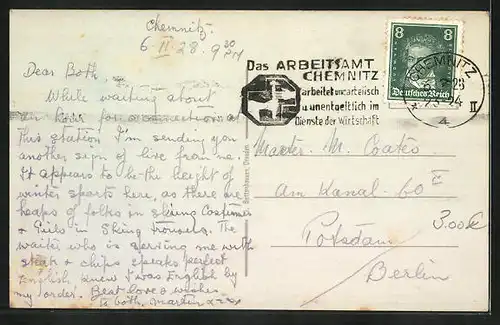 Chemnitz.
6. II 28. 9 30 PM
Dear Both,
While waiting about
an hour for a connection at
this station I'm sending you
another sign of live from me.
It appears to be the height of
winter sports here, as there are
heaps of folks in skiing costumes
& girls in skiing trousers. The
waiter who is serving me with
steak & chips speaks perfect
English, knew I was English by
my order. Best love & wishes
to both. Martin
Das ARBEITSAMT
CHEMNITZ
arbeitet unparteiisch
u. unentgeltlich im
Dienste der Wirtschaft
8 8
Deutsches Reich
CHEMNITZ
II
4
Master M. Coates
Am Kanal 60
Potsdam
Berlin
3.00€